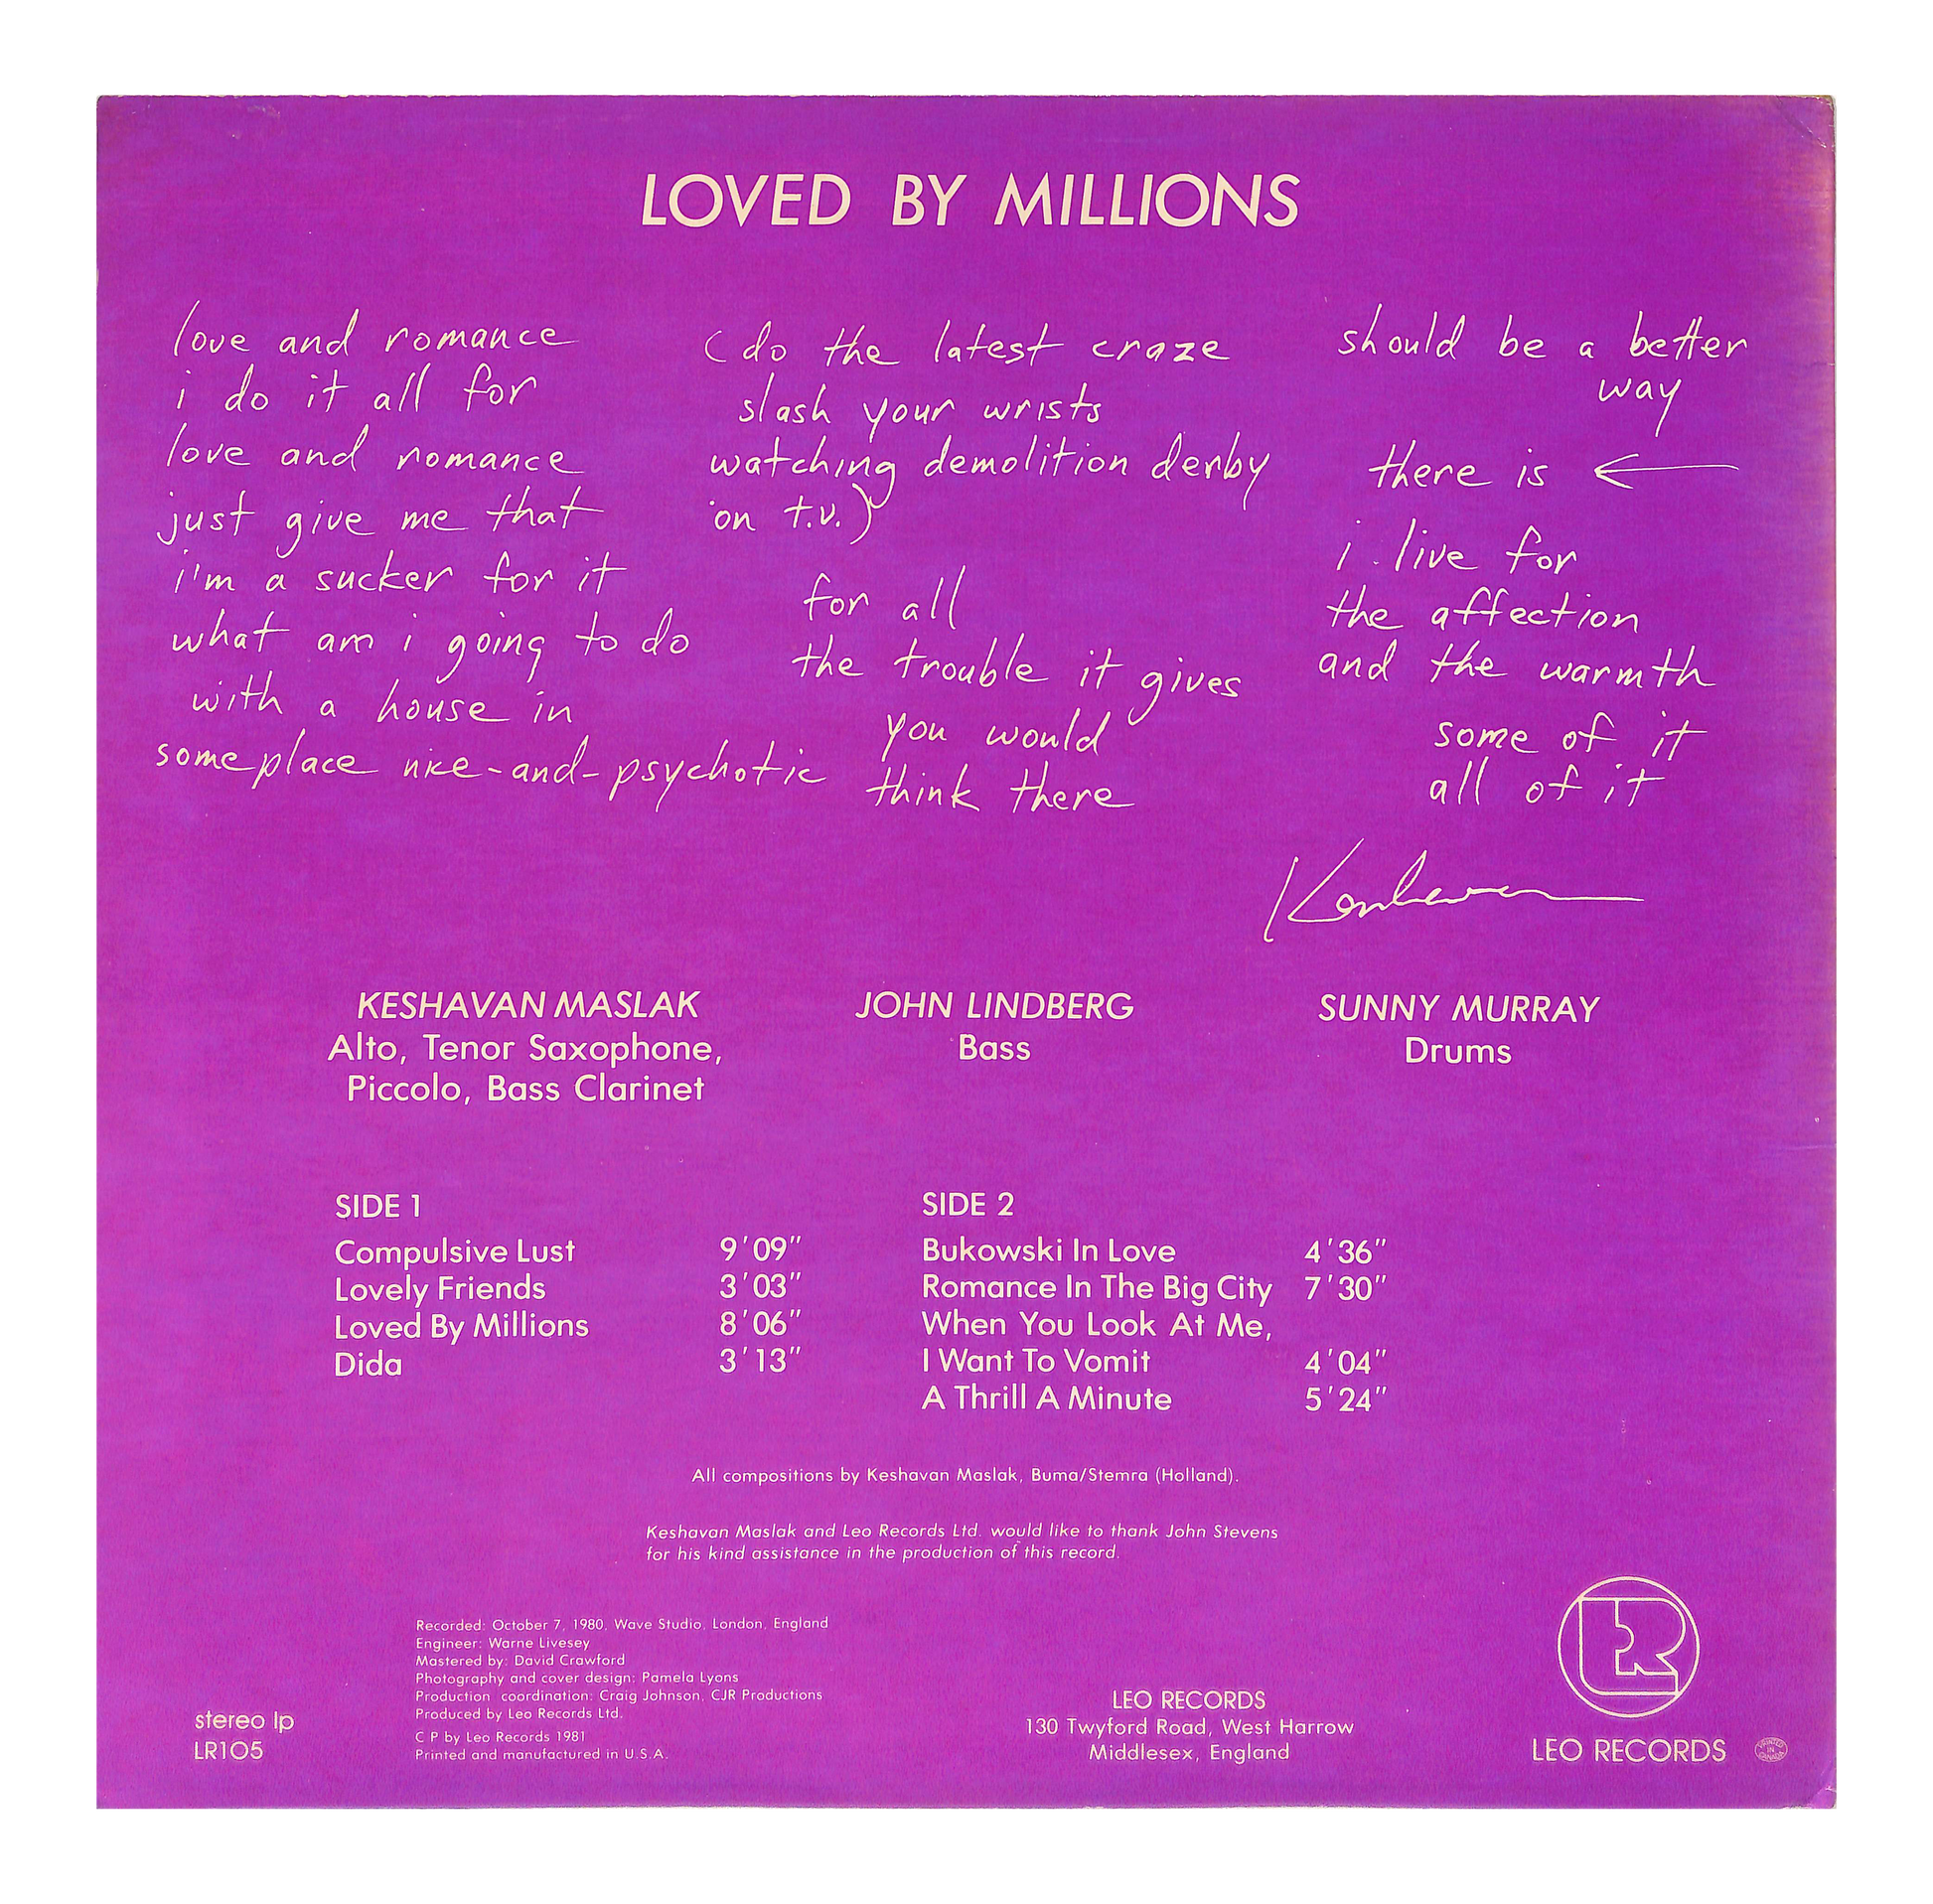 LOVED BY MILLIONS
love and romance
i do it all for
love and romance
just give me that
i'm a sucker for it
what am i going to do
with a house in
someplace nice-and-psychotic
(do the latest craze
slash your wrists
watching demolition derby
on t.v.)
for all
the trouble it gives
you would
think there
should be a better
way
there is ←
i live for
the affection
and the warmth
some of it
all of it
Keshavan
KESHAVAN MASLAK
Alto, Tenor Saxophone,
Piccolo, Bass Clarinet
JOHN LINDBERG
Bass
SUNNY MURRAY
Drums
SIDE 1
Compulsive Lust 9'09"
Lovely Friends 3'03"
Loved By Millions 8'06"
Dida 3'13"
SIDE 2
Bukowski In Love 4'36"
Romance In The Big City 7'30"
When You Look At Me,
I Want To Vomit 4'04"
A Thrill A Minute 5'24"
All compositions by Keshavan Maslak, Buma/Stemra (Holland).
Keshavan Maslak and Leo Records Ltd. would like to thank John Stevens
for his kind assistance in the production of this record.
Recorded: October 7, 1980, Wave Studio, London, England
Engineer: Warne Livesey
Mastered by: David Crawford
Photography and cover design: Pamela Lyons
Production coordination: Craig Johnson, CJR Productions
Produced by Leo Records Ltd.
C P by Leo Records 1981
Printed and manufactured in U.S.A.
stereo lp
LR105
LEO RECORDS
130 Twyford Road, West Harrow
Middlesex, England
LR
LEO RECORDS
PRINTED
IN
CANADA